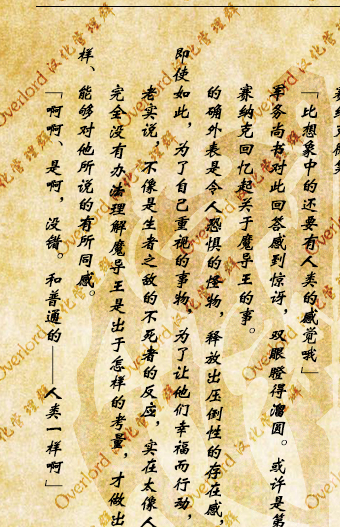 「比想象中的还要有人类的感觉哦」
军务尚书对此回答感到惊讶，双眼瞪得溜圆。或许是第
赛纳克回忆起关于魔导王的事。
的确外表是令人恐惧的怪物，释放出压倒性的存在感，
即使如此，为了自己重视的事物，为了让他们幸福而行动，
老实说，不像是生者之敌的不死者的反应，实在太像人
完全没有办法理解魔导王是出于怎样的考量，才做出
样、能够对他所说的有所同感。
「啊啊、是啊，没错。和普通的——人类一样啊」
Overlord 汉化管理群